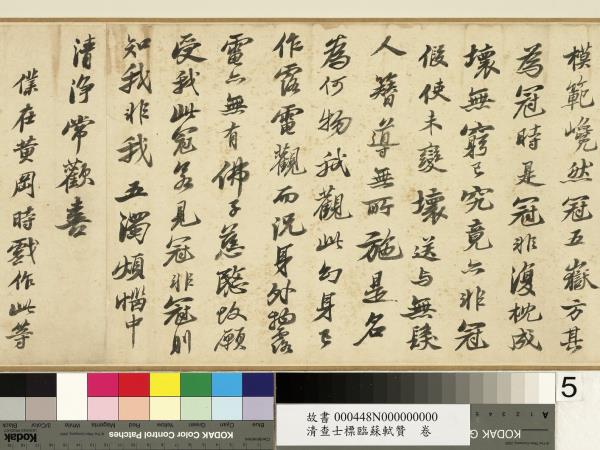 模範巉然冠五嶽方其
為冠時是冠非復枕成
壞無窮已究竟亦非冠
假使未變壞送与無髮
人簪導無所施是名
為何物我觀此幻身已
作露電觀而況身外物露
電亦無有佛子慈愍故願
受我此冠若見冠非冠則
知我非我五濁煩惱中
清淨常歡喜
僕在黃岡時戲作此等
5
故書 000448N000000000
清查士標臨蘇軾贊　卷
KODAK Color Control Patches
Blue Cyan Green Yellow Red Magenta White 3/Color Black
Kodak
KODAK G
A